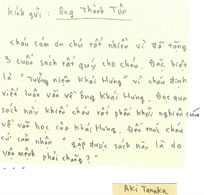 Kính gửi : Ông Thành Tôn
cháu cám ơn chú rất nhiều vì đã tặng
3 cuốn sách rất quý cho cháu. Đặc biệt
là "Tưởng niệm Khái Hưng" vì cháu định
viết luận văn về ông Khái Hưng. Đọc qua
sách này khiến cháu rất phấn khởi nghiên cứu
về văn học của Khái Hưng. Đến mức cháu
cứ cân nhắc "gặp được sách này là do
vận mệnh phải chăng ? "
Aki Tanaka